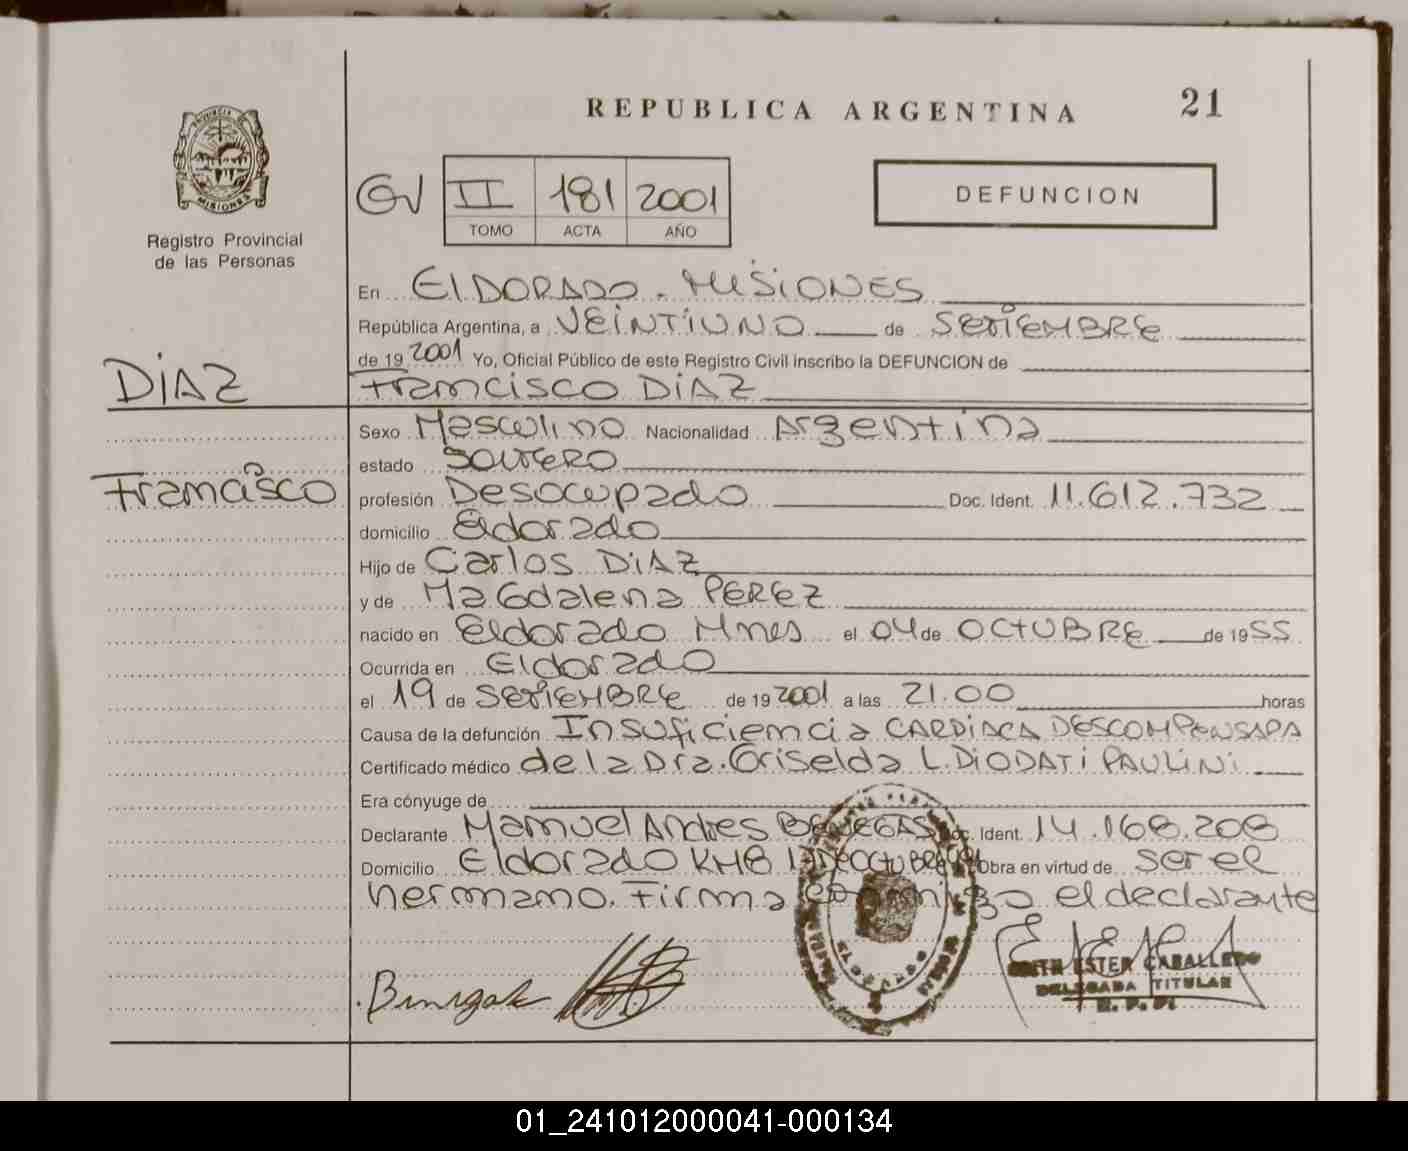 REPUBLICA ARGENTINA
21
PROVINCIA DE
MISIONES
Registro Provincial
de las Personas
GV II 181 2001
TOMO ACTA AÑO
DEFUNCION
En ElDORADO - MISIONES
República Argentina, a VEINTIUNO de SETIEMBRE
de 19 2001 Yo, Oficial Público de este Registro Civil inscribo la DEFUNCION de
DIAZ
Francisco DIAZ
Sexo Masculino Nacionalidad Argentina
estado SOLTERO
Francisco
profesión Desocupado Doc. Ident. 11.612.732
domicilio Eldorado
Hijo de Carlos DIAZ
y de MaGdalena PEREZ
nacido en Eldorado Mnes el 04 de OCTUBRE de 1955
Ocurrida en Eldorado
el 19 de SETIEMBRE de 19 2001 a las 21.00 horas
Causa de la defunción Insuficiencia CARDIACA DESCOMPENSADA
Certificado médico de la Dra. Griselda L. DIODATI PAULINI
Era cónyuge de
Declarante Manuel Andres BENEGAS Doc. Ident. 14.168.208
Domicilio Eldorado KM8 17 De OCTUBRE Obra en virtud de ser el
hermano. Firma conmigo el declarante
ELDORADO
EDITH ESTER CABALLERO
DELEGADA TITULAR
R. P. P.
01_241012000041-000134